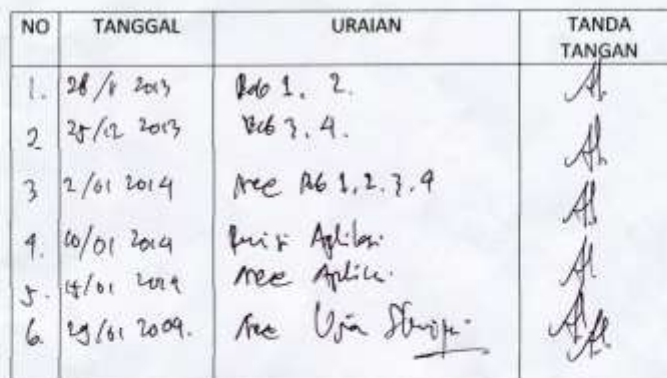 NO TANGGAL URAIAN TANDA TANGAN
1. 28/ 2013 Bab 1. 2.
2 25/12 2013 Bab 3. 4.
3 2/01 2014 Acc Bab 1.2.3.4
4. 10/01 2014 Aplikasi
5. 15/01 2014 Acc
6. 29/01 2009. Acc Ujian Skripsi